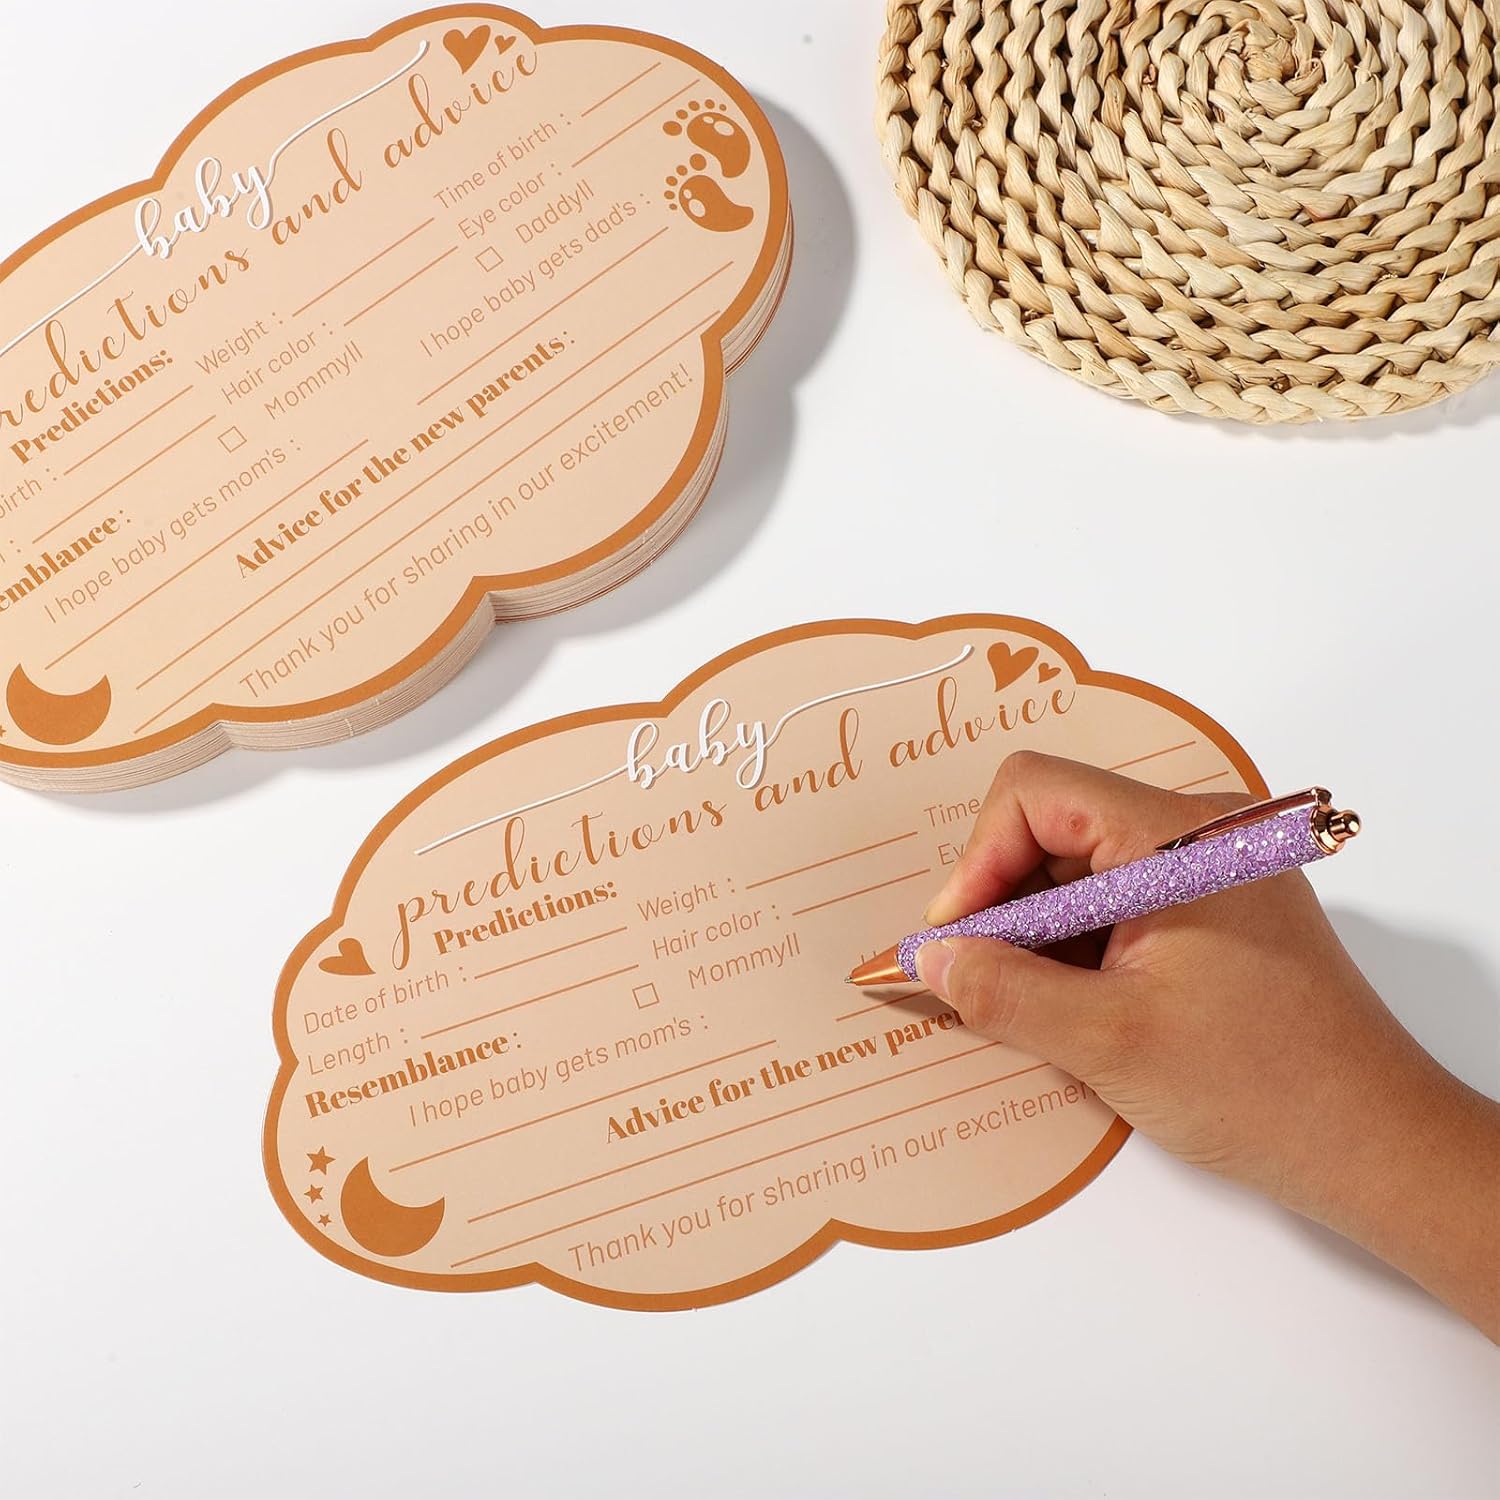 baby
predictions and advice
Predictions:
birth : Weight : Time of birth :
Hair color : Eye color :
Mommyll Daddyll
I hope baby gets mom's : I hope baby gets dad's :
Advice for the new parents:
Thank you for sharing in our excitement!
baby
predictions and advice
Predictions:
Date of birth : Weight : Time
Length : Hair color :
Resemblance : Mommyll
I hope baby gets mom's :
Advice for the new
Thank you for sharing in our